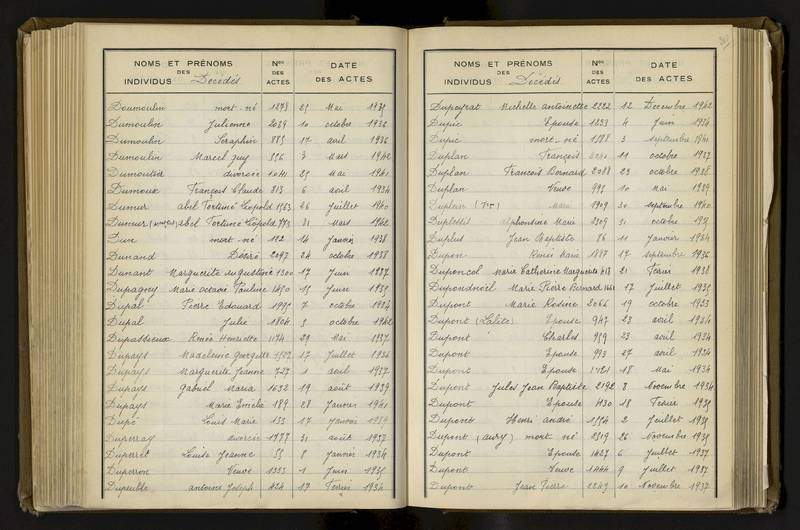 NOMS ET PRÉNOMS DES INDIVIDUS Décédés Nos DES ACTES DATE DES ACTES
Doumoulin mort-né 1879 25 Mai 1935
Dumoulin Julienne 2039 10 octobre 1936
Dumoulin Seraphin 885 17 avril 1936
Dumoulin Marcel Guy 556 3 Mars 1942
Dumoutier divorcée 1041 25 Mai 1941
Dumoux François Claude 813 6 avril 1934
Dumur abel Fortuné Léopold 1563 26 Juillet 1940
Dumur abel Fortuné Léopold 31 Mars 1942
mort-né 192 14 Janvier 1938
Dunand Désiré 2097 24 octobre 1938
Dunant Marguerite augustine 1300 17 Juin 1937
Dupagny Marie octavie Pauline 1450 15 Juin 1935
Dupal Pierre Edouard 7 octobre 1934
Dupal Julie 1804 5 octobre 1942
Dupasseieux Renée Henriette 1174 29 Mai 1937
Dupays Madeleine Georgette 17 Juillet 1936
Dupays Marguerite Jeanne 727 1 avril 1937
Dupays Gabriel Maria 1632 19 août 1939
Dupays Marie Emélie 189 28 Janvier 1941
Dupé Louis Marie 133 17 Janvier 1939
Duperray divorcée 1777 31 août 1937
Duperret Louise Jeanne 55 8 Janvier 1934
Duperron Veuve 1333 1 Juin 1935
Dupeuble antoine Joseph 424 17 Février 1934
NOMS ET PRÉNOMS DES INDIVIDUS Décédés Nos DES ACTES DATE DES ACTES
Dupeyrat Michelle antoinette 2222 12 Decembre 1942
Dupic Epouse 1233 4 Juin 1934
Dupic mort-né 1578 3 septembre 1941
Duplan François 11 octobre 1937
Duplan François Bernard 2088 23 octobre 1938
Duplan Veuve 995 10 Mai 1939
Marie 1909 30 septembre 1940
Duplessis alphonsine Marie 2309 31 octobre 1935
Duplus Jean Baptiste 86 11 Janvier 1934
Dupon Renée Marie 1887 17 septembre 1936
Duponcol Marie Catherine Marguerite 418 21 Février 1938
Dupondnoël Marie Pierre Bernard 1661 17 Juillet 1935
Dupont Marie Rosine 2066 19 octobre 1933
Dupont (Lafite) Epouse 947 23 avril 1934
Dupont Charles 959 23 avril 1934
Dupont Epouse 993 27 avril 1934
Dupont Epouse 1121 18 Mai 1934
Dupont Jules Jean Baptiste 2192 8 Novembre 1934
Dupont Epouse 430 18 Février 1935
Dupont Henri andré 1554 2 Juillet 1935
Dupont (aury) mort né 2519 26 Novembre 1935
Dupont Epouse 1427 6 Juillet 1937
Dupont Veuve 1444 9 Juillet 1937
Dupont Jean Pierre 2249 10 Novembre 1937